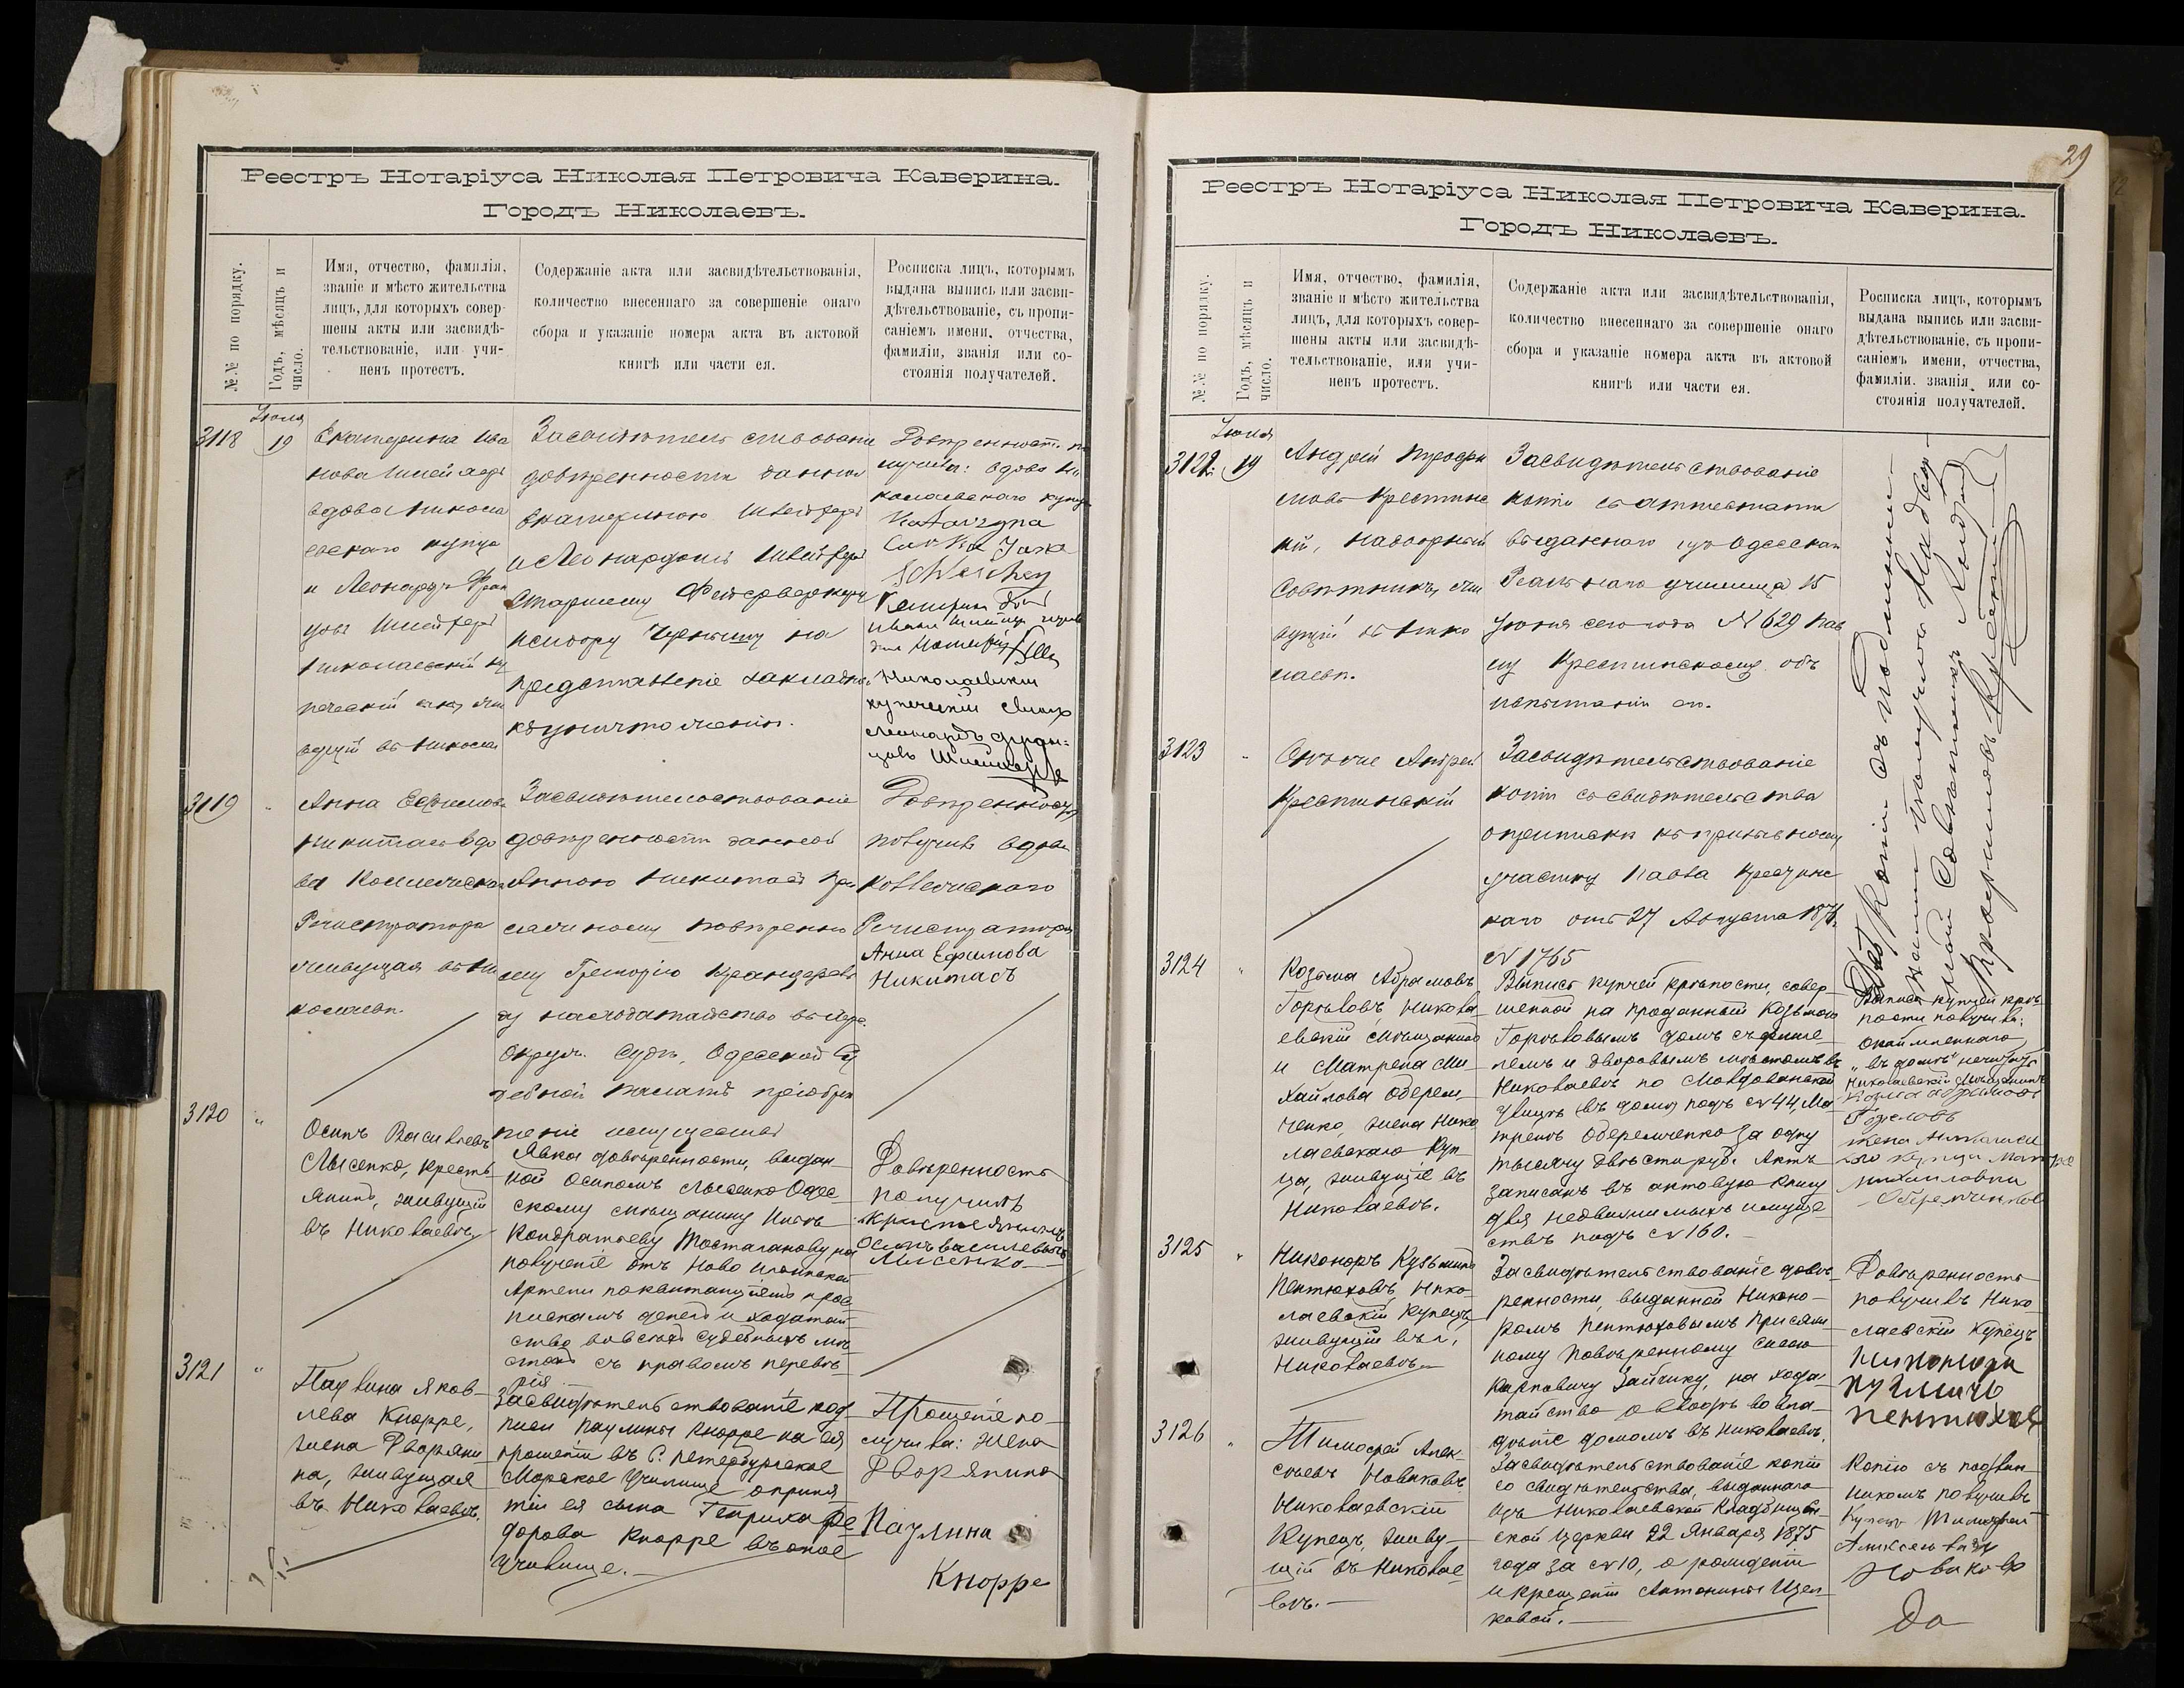 Реестръ Нотаріуса Николая Петровича Каверина.
Городъ Николаевъ.
№.№ по порядку.
Годъ, мѣсяцъ и
число.
Имя, отчество, фамилія,
званіе и мѣсто жительства
лицъ, для которыхъ совер-
шены акты или засвидѣ-
тельствованіе, или учи-
ненъ протестъ.
Содержаніе акта или засвидѣтельствованія,
количество внесеннаго за совершеніе онаго
сбора и указаніе номера акта въ актовой
книгѣ или части ея.
Росписка лицъ, которымъ
выдана выпись или засви-
дѣтельствованіе, съ пропи-
саніемъ имени, отчества,
фамиліи, званія или со-
стоянія получателей.
Іюля
3118
19
Екатерина Ива
нова Шнейдеръ
вдова Никола
евскаго купца
и Леонардъ Фран
цовъ
Николаевскій ку
печескій сынъ жи
вущій въ Никола
Засвидѣтельствованіе
довѣренности данной
Екатериною
и Леонардомъ
Старшему Фейерверкеру
на
представленіе закладной
къ уничтоженію.
Довѣренность по
лучила: вдова Ни
колаевскаго купца
Katarzyna
Николаевскій
купеческій сынъ
Леонардъ Фран=
цовъ
3119
"
Анна Ефимова
Никитасъ вдо
ва Коллежскаго
Регистратора
живущая въ Ни
колаевѣ.
Засвидѣтельствованіе
довѣренности данной
Анною Никитасъ При
сяжному повѣренно
му Григорію
на ходатайство въ
Окруж. Судѣ, Одесской Су
дебной Палатѣ пріобрѣ
теніе имущества
Довѣренность
получила вдова
Коллежскаго
Регистратора
Анна Ефимова
Никитасъ
3120
"
Осипъ Васильевъ
Лысенко, кресть
янинъ, живущій
въ Николаевѣ
Явка довѣренности, выдан-
ной Осипомъ Лысенко Одес-
скому мѣщанину
Кондратьеву на
полученіе отъ Ново
Артели по квитанціямъ и рос
пискамъ денегъ и ходатай
ство во всѣхъ судебныхъ мѣ
стахъ съ правомъ передовѣ
рія.
Довѣренность
получилъ
крестьянинъ
Осипъ Васильевичъ
Лисенко
3121
"
Паулина Яков-
лева Кнорре,
жена Дворяни
на, живущая
въ Николаевѣ.
Засвидѣтельствованіе под
писи Паулины Кнорре на ея
прошеніи въ С. Петербургское
Морское Училище о приня
тіи ея сына Генриха Фе
дорова Кнорре въ оное
Училище.
Прошеніе по-
лучила: жена
Дворянина
Паулина
Кнорре
29
Реестръ Нотаріуса Николая Петровича Каверина.
Городъ Николаевъ.
№.№ по порядку.
Годъ, мѣсяцъ и
число.
Имя, отчество, фамилія,
званіе и мѣсто жительства
лицъ, для которыхъ совер-
шены акты или засвидѣ-
тельствованіе, или учи-
ненъ протестъ.
Содержаніе акта или засвидѣтельствованія,
количество внесеннаго за совершеніе онаго
сбора и указаніе номера акта въ актовой
книгѣ или части ея.
Росписка лицъ, которымъ
выдана выпись или засви-
дѣтельствованіе, съ пропи-
саніемъ имени, отчества,
фамиліи. званія, или со-
стоянія получателей.
Іюля
3122.
19
Андрей Трофи
мовъ Крестинс
кій, Надворный
Совѣтникъ, жи
вущій въ Нико
лаевѣ.
Засвидѣтельствованіе
копіи съ аттестата
выданнаго изъ Одесскаго
Реальнаго училища 15
Іюня сего года №629 Пав
лу Крестинскому объ
испытаніи его.
Двѣ Копіи съ подлинни-
ками получилъ Надвор-
ный Совѣтникъ Андрей
Трофимовъ Крестинскій
3123
"
Онъ же Андрей
Крестинскій
Засвидѣтельствованіе
копіи съ свидѣтельства
о припискѣ къ призывному
участку Павла Крестинс
каго отъ 27 Августа 187
№ 1765
3124
"
Козьма Абрамовъ
Горѣловъ Никола
евскій мѣщанинъ
и Матрена Ми-
хайлова Оберем-
ченко, жена Нико
лаевскаго Куп
ца, живущіе въ
Николаевѣ.
Выпись купчей крѣпости, совер-
шенной на проданный Козьмою
Горѣловымъ домъ съ строе
ніемъ и дворовымъ мѣстомъ въ
Николаевѣ по Молдованской
улицѣ (въ дому) подъ №44, Ма
тренѣ Оберемченко за одну
тысячу двѣсти руб. Актъ
записанъ въ актовую книгу
для недвижимыхъ имуще
ствъ подъ №160.
Выпись купчей крѣ
пости получили:
"въ домѣ" нечитать
Николаевскій мѣщанинъ
Козма Абрамовъ
Горѣловъ
жена Николаевс
каго купца Матрена
Михайловна
Оберемченкова
3125
"
Никоноръ Кузьминъ
Пентюховъ, Нико-
лаевскій Купецъ
живущій въ г.
Николаевѣ
Засвидѣтельствованіе довѣ
ренности, выданной Никоно-
ромъ Пентюховымъ Присяж
ному Повѣренному
Карповичу Зайчику, на хода-
тайство о вводѣ во вла-
дѣніе домомъ въ Николаевѣ.
Довѣренность
получилъ Нико
лаевскій Купецъ
Никоноръ
Кузмичъ
Пентюховъ
3126
"
Тимофей Алек-
сѣевъ Новиковъ
Николаевскій
Купецъ, живу-
щій въ Николае
вѣ.
Засвидѣтельствованіе копіи
со свидѣтельства, выданнаго
изъ Николаевской Кладбищен
ской церкви 22 Января 1875
года за №10, о рожденіи
и крещеніи Антонины Щел
ковой.
Копію съ подлин-
никомъ получилъ
Купецъ Тимофей
Новиковъ